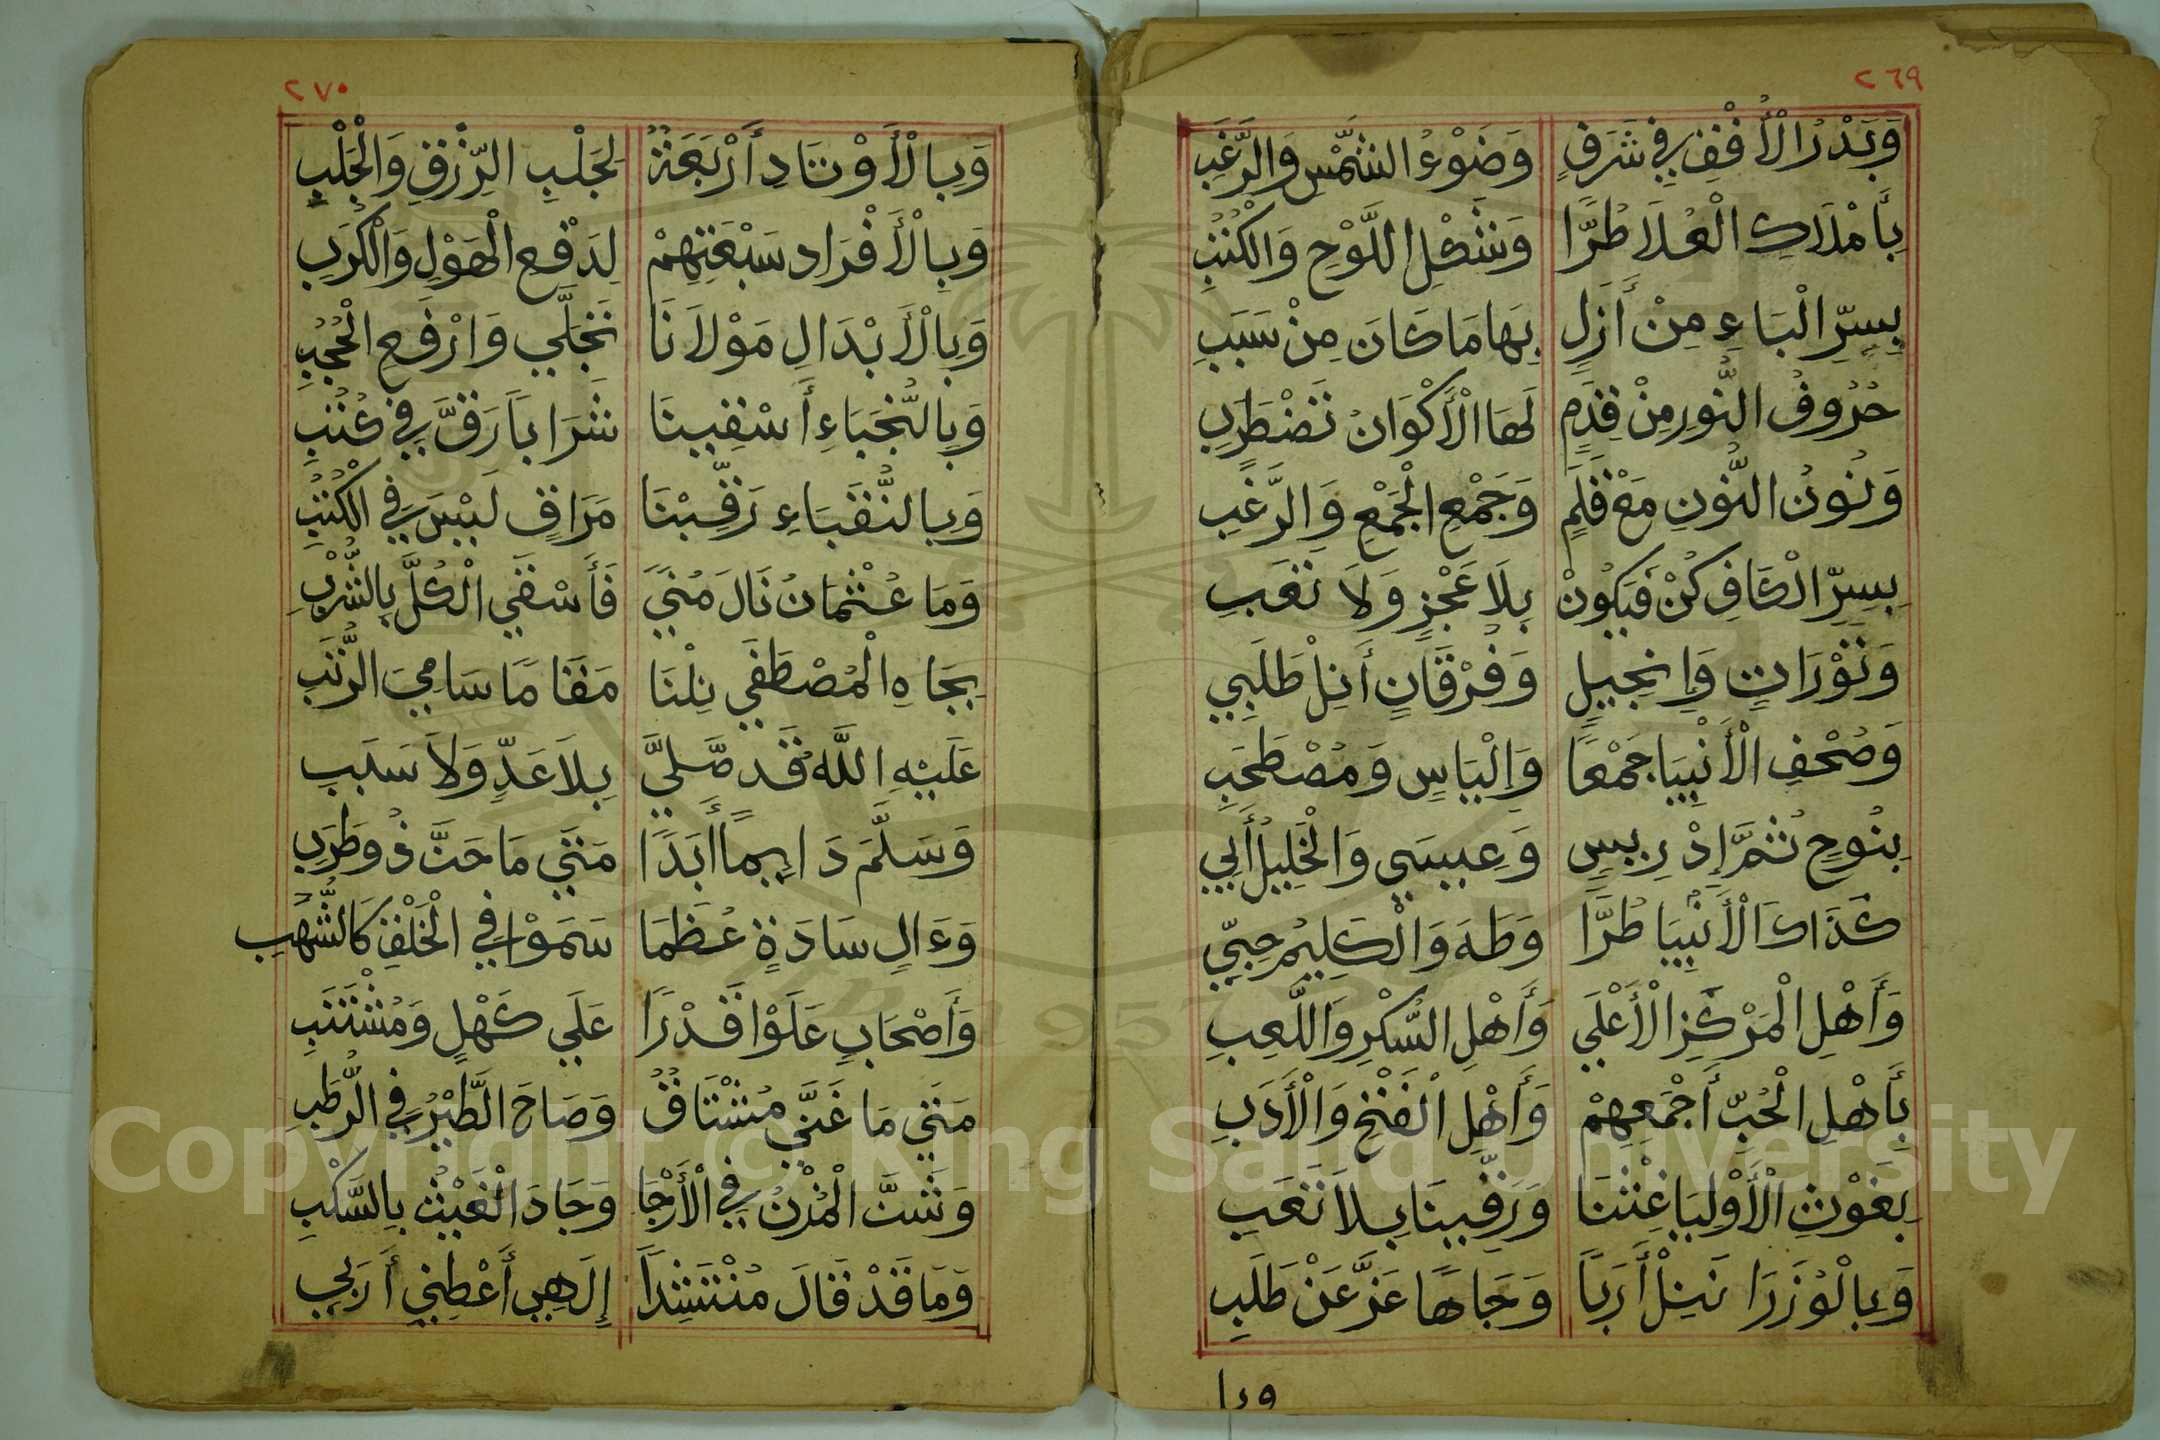 ٢٦٩
وَبَدْرُ الْأُفْقِ فِي شَرَفٍ وَضَوْءُ الشَّمْسِ وَالرَّغَبِ
بِأَمْلَاكِ الْعُلَا طُرًّا وَشَكْلِ اللَّوْحِ وَالْكُتُبِ
بِسِرِّ الْبَاءِ مِنْ أَزَلٍ بِهَا مَا كَانَ مِنْ سَبَبِ
حُرُوفُ النُّورِ مِنْ قِدَمٍ لَهَا الْأَكْوَانُ تَضْطَرِبِ
وَنُونُ النُّونِ مَعْ قَلَمٍ وَجَمْعِ الْجَمْعِ وَالرَّغَبِ
بِسِرِّ الْكَافِ كُنْ فَيَكُونْ بِلَا عَجْزٍ وَلَا تَعَبِ
وَتَوْرَاتٍ وَإِنجِيلٍ وَفُرْقَانٍ أَنِلْ طَلَبِي
وَصُحْفِ الْأَنْبِيَا جَمْعًا وَإِلْيَاسٍ وَمُصْطَحَبِ
بِنُوحٍ ثُمَّ إِدْرِيسٍ وَعِيسَي وَالْخَلِيلُ أَبِي
كَذَاكَ الْأَنْبِيَا طُرًّا وَطَهَ وَالْكَلِيمُ حِبِّي
وَأَهْلِ الْمَرْكَزِ الْأَعْلَي وَأَهْلِ السُّكْرِ وَاللَّعِبِ
بِأَهْلِ الْحُبِّ أَجْمَعِهِمْ وَأَهْلِ الْفَتْحِ وَالْأَدَبِ
بِغَوْثِ الْأَوْلِيَا غِثْنَا وَرَقِّينَا بِلَا تَعَبِ
وَبِالْوُزَرَا نَنِلْ أَرَبًا وَجَاهًا عَزَّ عَنْ طَلَبِ
٢٧٠
وَبِالْأَوْتَادِ أَرْبَعَةٌ لِجَلْبِ الرِّزْقِ وَالْجَلْبِ
وَبِالْأَفْرَادِ سَبْعَتِهِمْ لِدَفْعِ الْهَوْلِ وَالْكُرَبِ
وَبِالْأَبْدَالِ مَوْلَانَا تَجَلَّي وَارْفَعِ الْحُجُبِ
وَبِالنُّجَبَاءِ أَسْقِينَا شَرَابًا رَقَّ فِي عُتُبِ
وَبِالنُّقَبَاءِ رَقِّينَا مَرَاقٍ لَيْسَ فِي الْكُتُبِ
وَمَا عُثْمَانُ نَالَ مُنَيً فَأَسْقَي الْكُلَّ بِالشُّرْبِ
بِجَاهِ الْمُصْطَفَي نِلْنَا مَقَامًا سَامِيَ الرُّتَبِ
عَلَيْهِ اللَّهُ قَدْ صَلَّي بِلَا عَدٍّ وَلَا سَبَبِ
وَسَلَّمَ دَايِمًا أَبَدًا مَتَي مَا حَنَّ ذُو طَرَبِ
وَءَالٍ سَادَةٍ عُظَمَا سَمَوْا فِي الْخَلْقِ كَالشُّهُبِ
وَأَصْحَابٍ عَلَوْا قَدْرًا عَلَي كَهْلٍ وَمُشْتَبِ
مَتَي مَا غَنَّي مُشْتَاقٌ وَصَاحَ الطَّيْرُ فِي الرُّطَبِ
وَشَتَّ الْمُزْنُ فِي الْأَرْجَا وَجَادَ الْغَيْثُ بِالسَّكْبِ
وَمَا قَدْ قَالَ مُنْتَشِدًا إِلَهِي أَعْطِنِي أَرَبِي
Copyright © King Saud University
1957